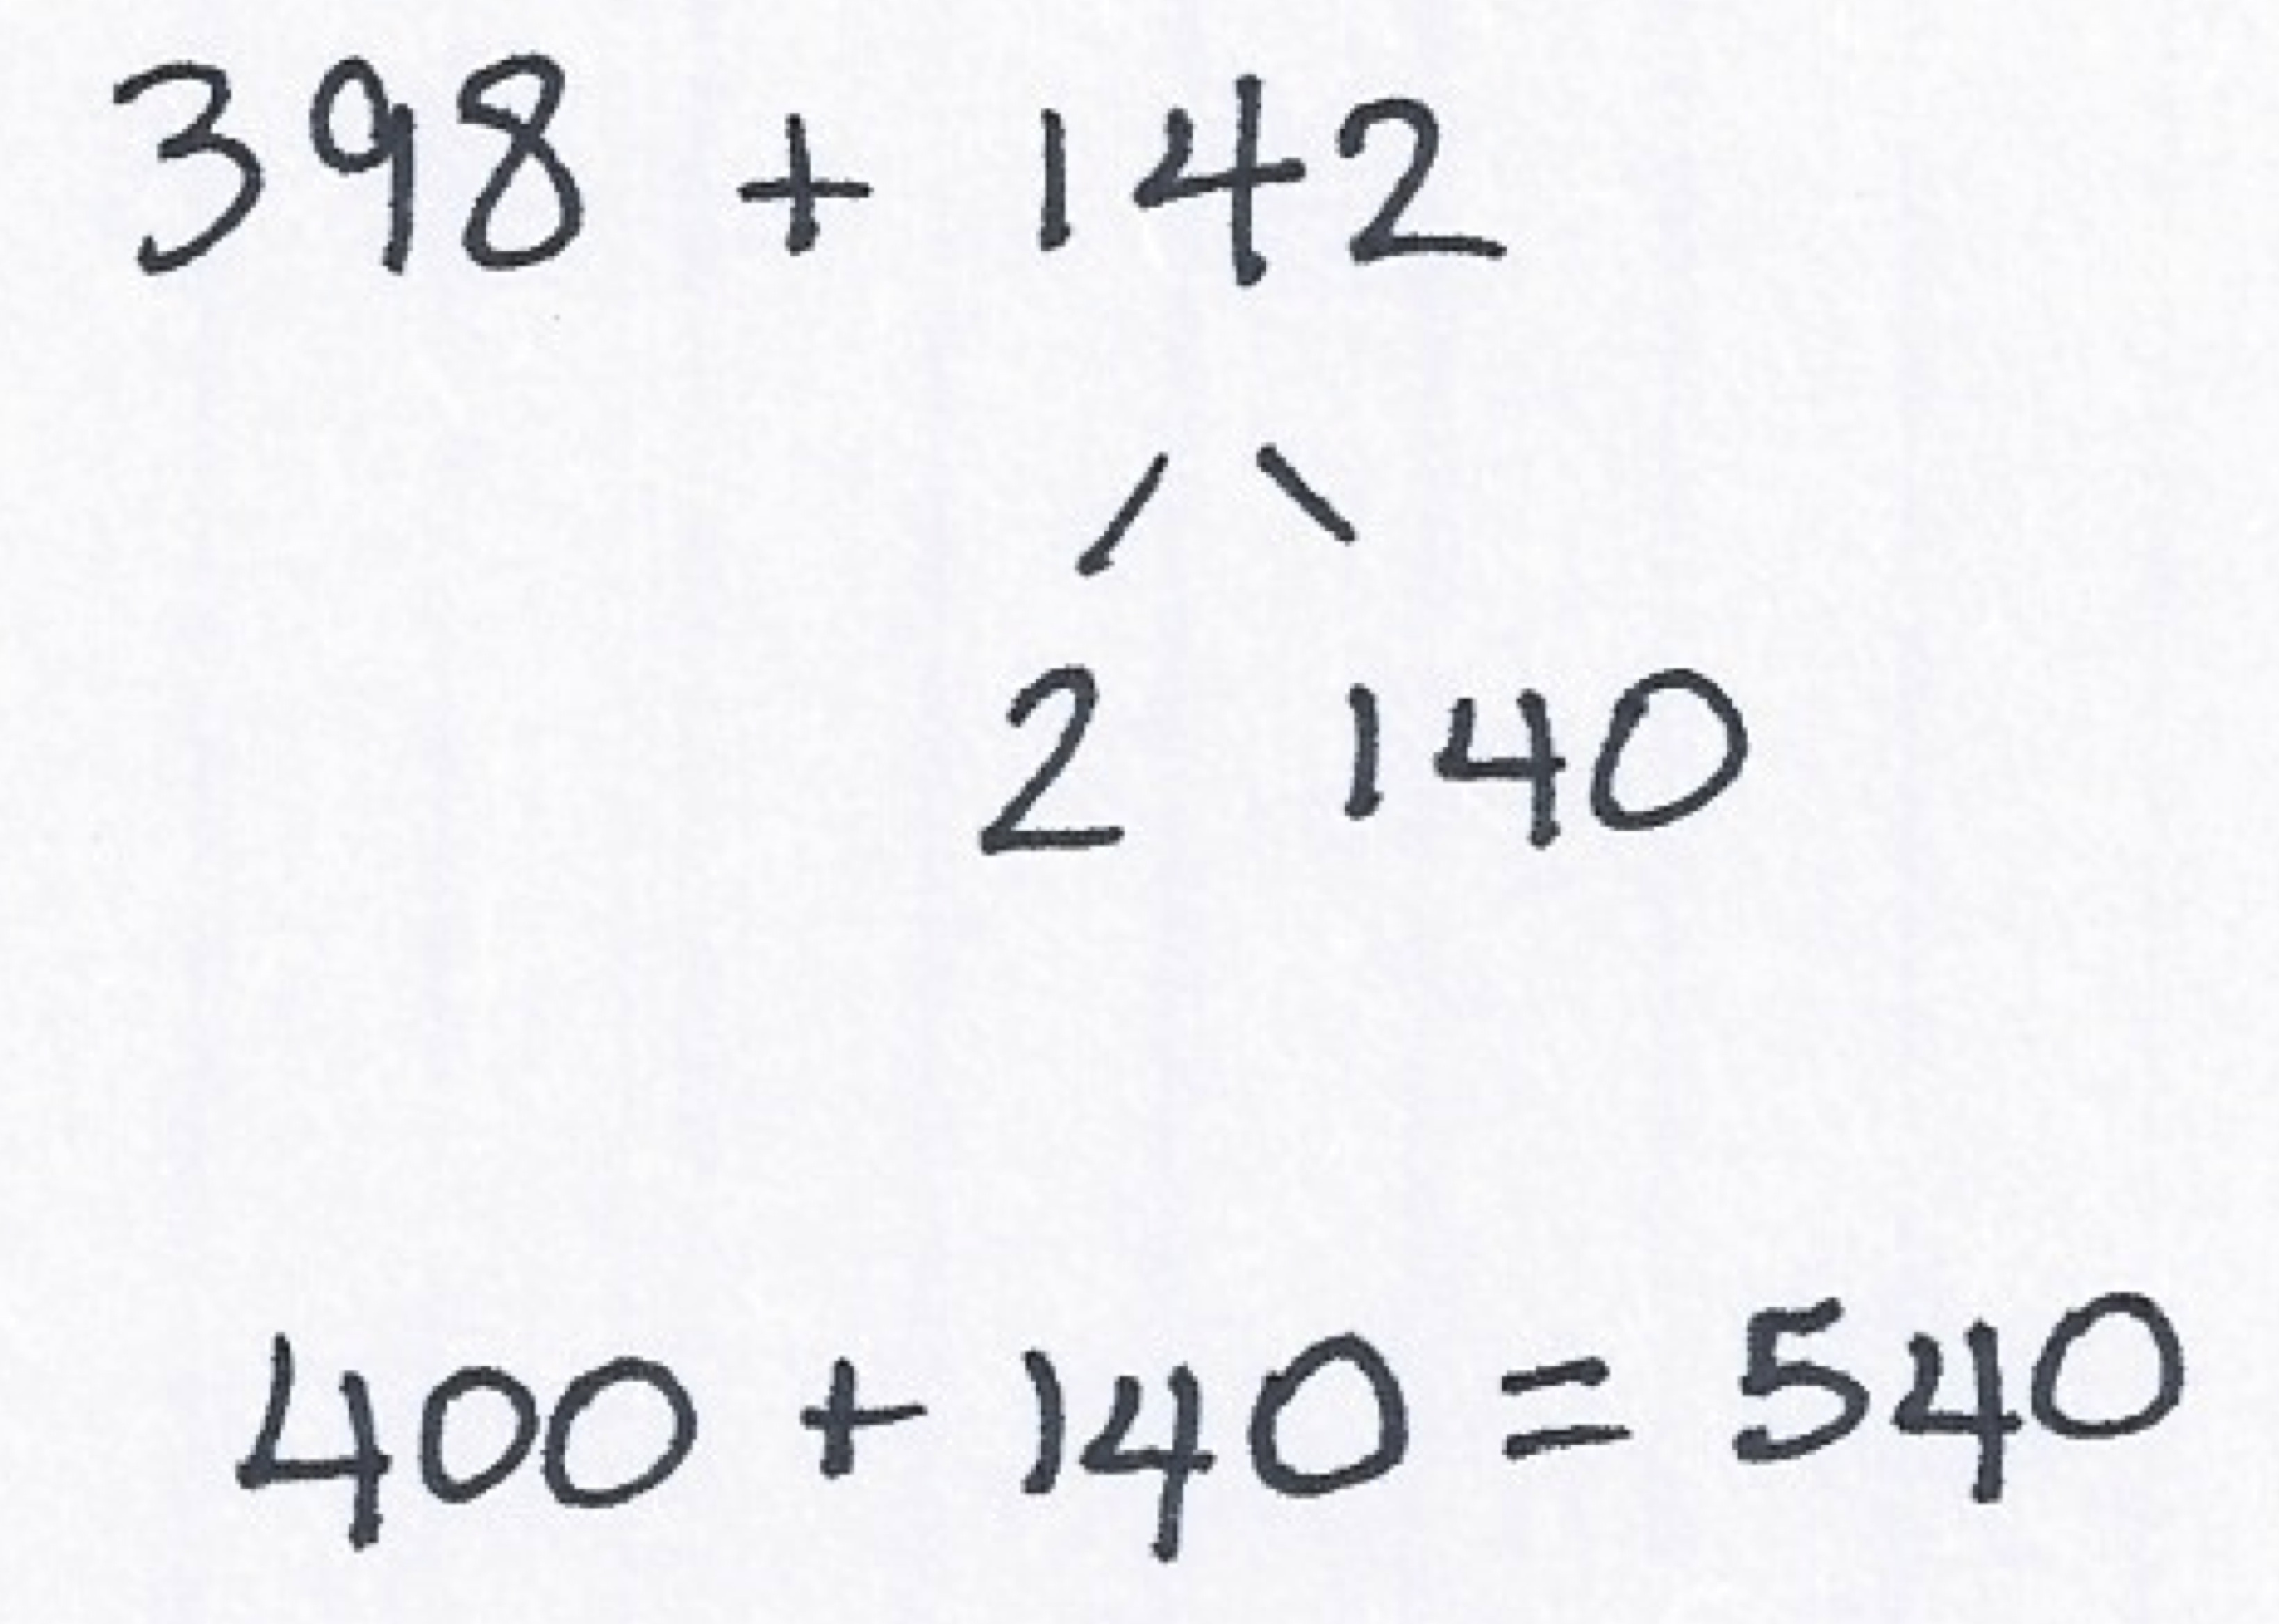 398 + 142
/ \
2 140
400 + 140 = 540